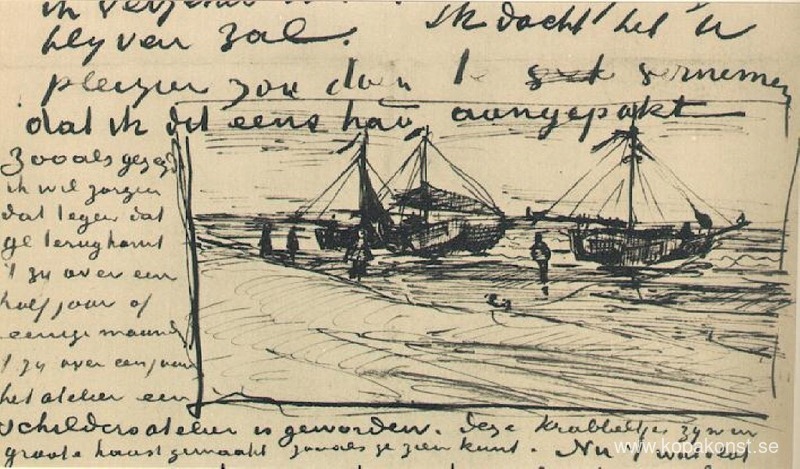 ik
blyven zal. Ik dacht het U
plezier zou doen te vernemen
dat ik dit eens had aangepakt
Zooals gezegd
ik wil zorgen
dat tegen dat
ge terugkomt
't zy over een
half jaar of
eenige maand
't zy over een jaar
het atelier een
schildersatelier is geworden. Deze krabbeltjes zyn in
groote haast gemaakt zooals ge zien kunt. Nu 't
www.kopakonst.se